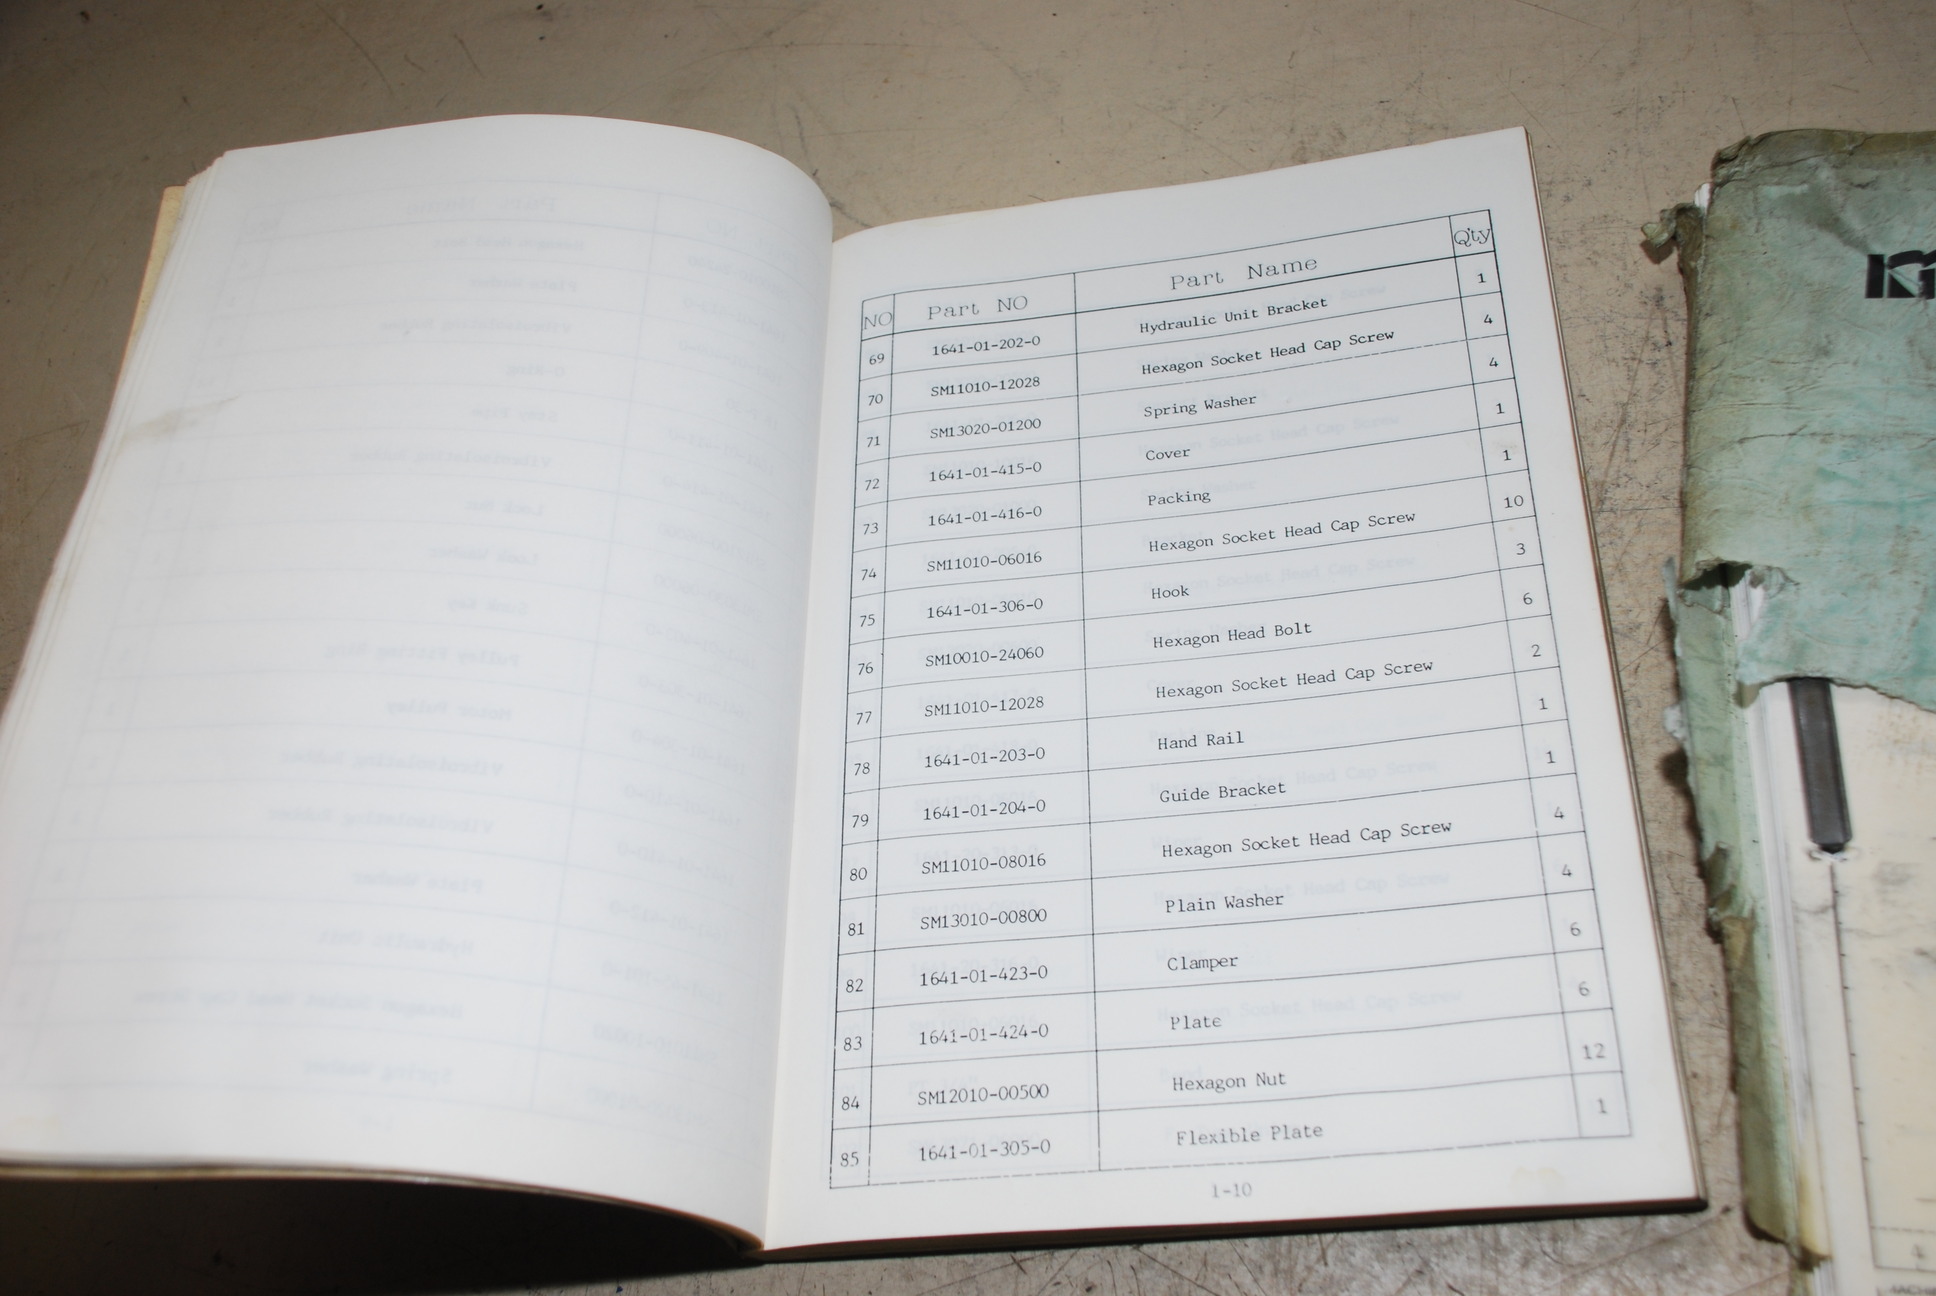 NO Part NO Part Name Q'ty
69 1641-01-202-0 Hydraulic Unit Bracket 1
70 SM11010-12028 Hexagon Socket Head Cap Screw 4
71 SM13020-01200 Spring Washer 4
72 1641-01-415-0 Cover 1
73 1641-01-416-0 Packing 1
74 SM11010-06016 Hexagon Socket Head Cap Screw 10
75 1641-01-306-0 Hook 3
76 SM10010-24060 Hexagon Head Bolt 6
77 SM11010-12028 Hexagon Socket Head Cap Screw 2
78 1641-01-203-0 Hand Rail 1
79 1641-01-204-0 Guide Bracket 1
80 SM11010-08016 Hexagon Socket Head Cap Screw 4
81 SM13010-00800 Plain Washer 4
82 1641-01-423-0 Clamper 6
83 1641-01-424-0 Plate 6
84 SM12010-00500 Hexagon Nut 12
85 1641-01-305-0 Flexible Plate 1
1-10
4